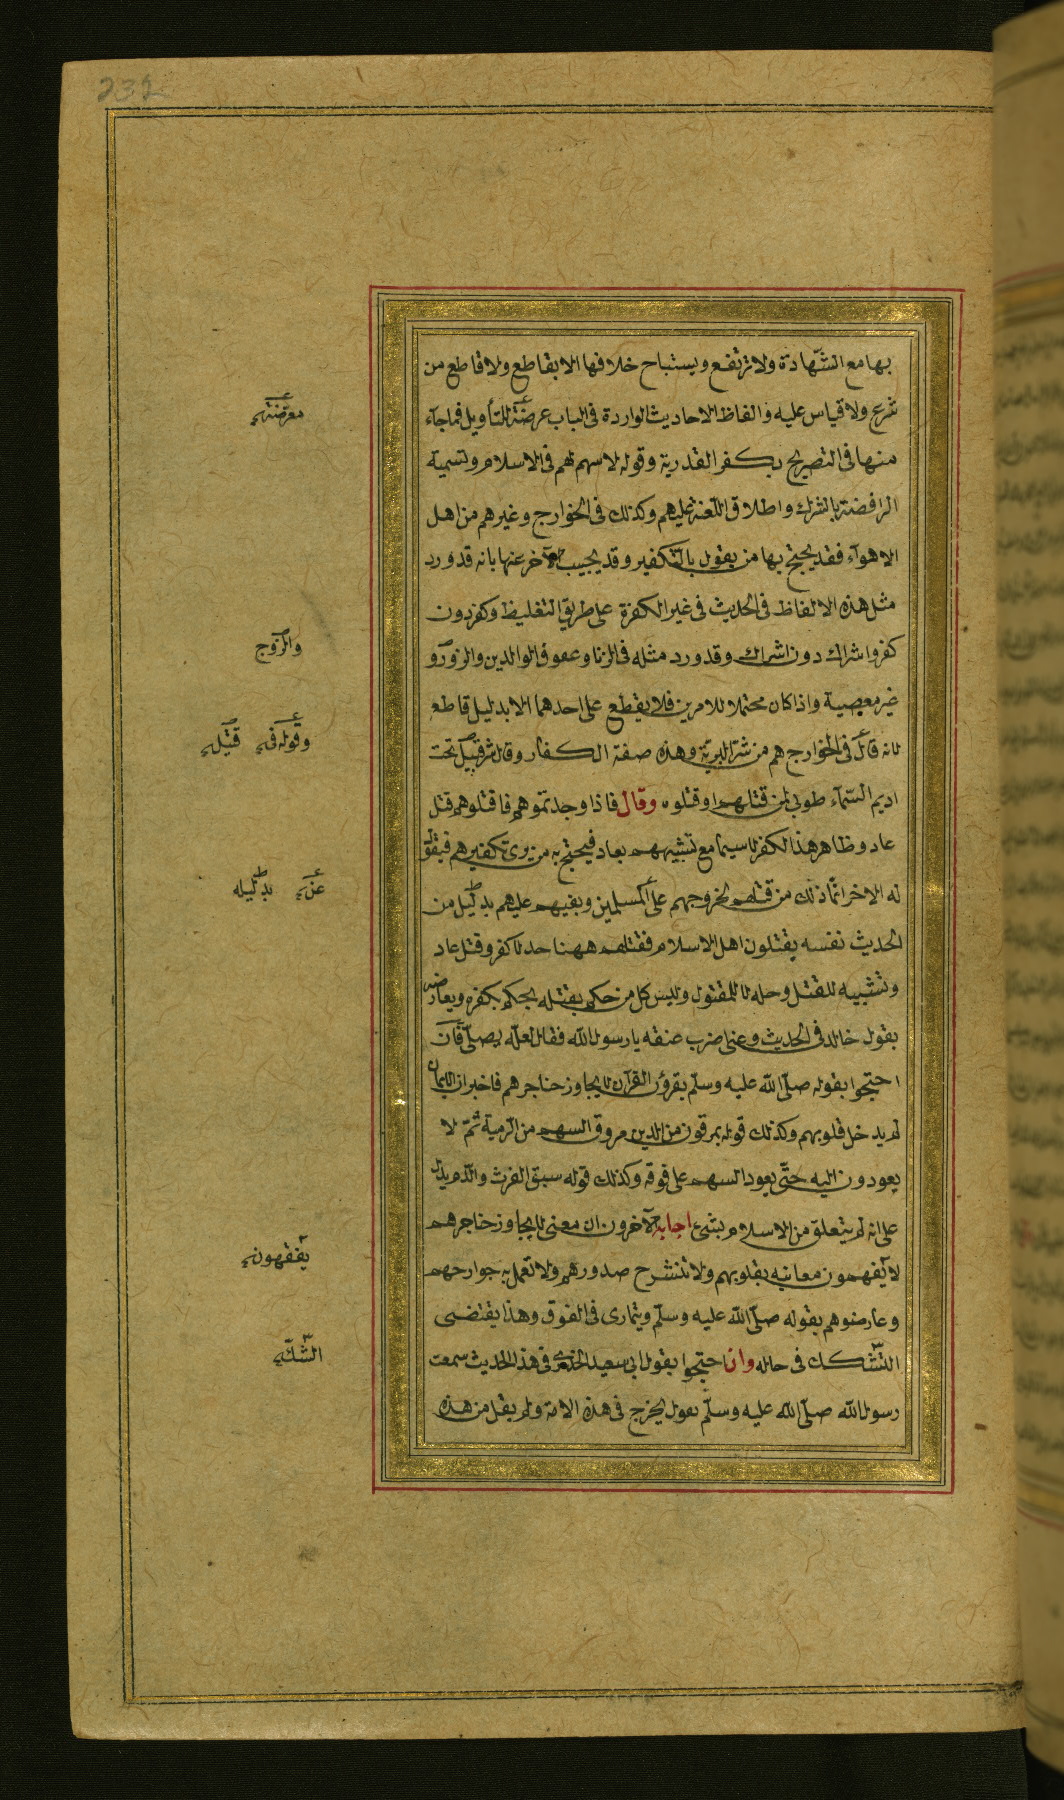 232
بها مع الشهادة ولا ترتفع ويستباح خلافها الا بقاطع ولا قاطع من
شرع ولا قياس عليه والفاظ الاحاديث الواردة فى الباب عرضة للتأويل فما جآء
منها فى التصريح بكفر القدرية وقوله لا سهم لهم فى الاسلام وتسمية
الرافضة بالشرك واطلاق اللعنة عليهم وكذلك فى الخوارج وغيرهم من اهل
الاهوآء فقد يحتج بها من يقول بالتكفير وقد يجيب الآخر عنها بانه قد ورد
مثل هذه الالفاظ فى الحديث فى غير الكفرة على طريق التغليظ وكفر دون
كفر واشراك دون اشراك وقد ورد مثله فى الرنا وعقوق الوالدين والزور و
غير معصية واذا كان محتملا للامرين فلا يقطع على احدهما الا بدليل قاطع
لانه قال فى الخوارج هم من شر البرية وهذه صفة الكفار وقال شر قبيل تحت
اديم السمآء طوبى لمن قتلهم او قتلوه وقال فاذا وجدتموهم فاقتلوهم قتل
عاد وظاهر هذا الكفر لا سيما مع تشبيههم بعاد فيحتج به من يرى تكفيرهم فيقول
له الاخر انما ذلك من قتلهم لخروجهم على المسلمين وبغيهم عليهم بدليل من
الحديث نفسه يقتلون اهل الاسلام فقتلهم ههنا حد لا كفر وقتل عاد
وتشبيه للقتل وحله لا للمقتول وليس كل من حكم بقتله يحكم بكفره ويعارضه
بقول خالد فى الحديث دعنى اضرب عنقه يا رسول الله فقال لعله يصلى فان
احتجوا بقوله صلى الله عليه وسلم يقرؤن القرآن لا يجاوز حناجرهم فاخبر ان الايمان
لم يدخل قلوبهم وكذلك قوله يمرقون من الدين مروق السهم من الرمية ثم لا
يعودون اليه حتى يعود السهم على فوقه وكذلك قوله سبق الفرث والدم يدل
على انه لم يتعلق من الاسلام بشئ اجابه الآخرون ان معنى لا يجاوز حناجرهم
لا يفهمون معانيه بقلوبهم ولا تنشرح صدورهم ولا تعمل به جوارحهم
وعارضوهم بقوله صلى الله عليه وسلم ويتمارى فى الفوق وهذا يقتضى
التشكك فى حاله وان احتجوا بقول ابى سعيد الخدرى فى هذا الحديث سمعت
رسول الله صلى الله عليه وسلم يقول يخرج فى هذه الامة ولم يقل من هذه
معرضة
والزوج
وقوله قتيل
عن بدليله
يفقهون
الشك